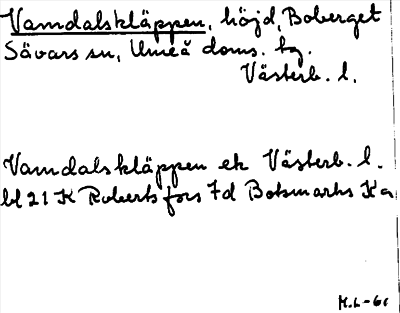 Vamdalskläppen, höjd, Boberget
Sävars sn, Umeå doms. tg.
Västerb. l.
Vamdalskläppen ek Västerb. l.
bl 21 K Robertsfors 7d Botsmarks Ka
H.L-61